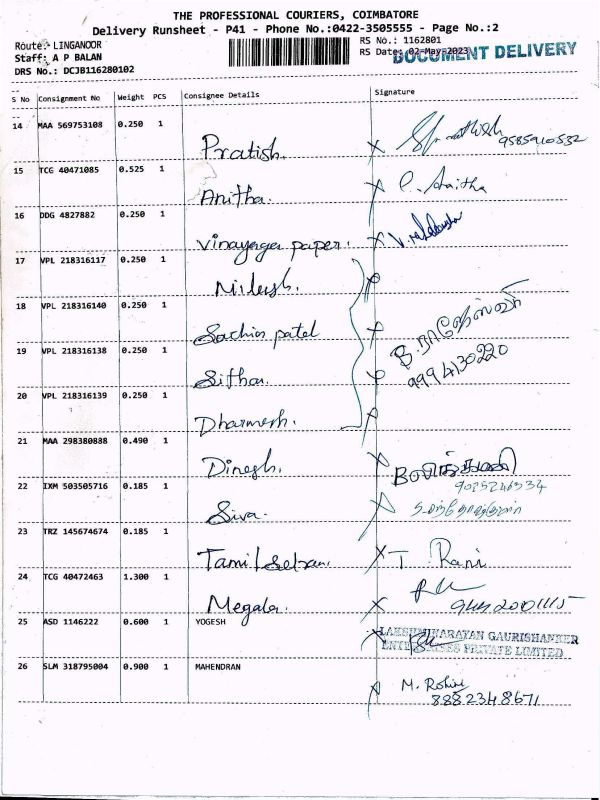 THE PROFESSIONAL COURIERS, COIMBATORE
Delivery Runsheet - P41 - Phone No.:0422-3505555 - Page No.:2
Route: LINGANOOR
RS No.: 1162801
Staff: A P BALAN
RS Date: 02-May-2023
DOCUMENT DELIVERY
DRS No.: DCJB116280102
S No Consignment No Weight PCS Consignee Details Signature
14 MAA 569753108 0.250 1 Pratish. 9585910532
15 TCG 40471085 0.525 1 Anitha.
16 DDG 4827882 0.250 1 Vinayaga paper.
17 VPL 218316117 0.250 1 Nilesh.
18 VPL 218316140 0.250 1 Sachin patel
19 VPL 218316138 0.250 1 9994130220
20 VPL 218316139 0.250 1 Dharmesh.
21 MAA 298380888 0.490 1 Dinesh.
22 IXM 503505716 0.185 1 Siva.
23 TRZ 145674674 0.185 1 Tamilselvan. T. Rani
24 TCG 40472463 1.300 1 Megala.
25 ASD 1146222 0.600 1 YOGESH LAKSHMINARAYAN GAURISHANKER
ENTERPRISES PRIVATE LIMITED
26 SLM 318795004 0.900 1 MAHENDRAN M. Rohini
8882348671